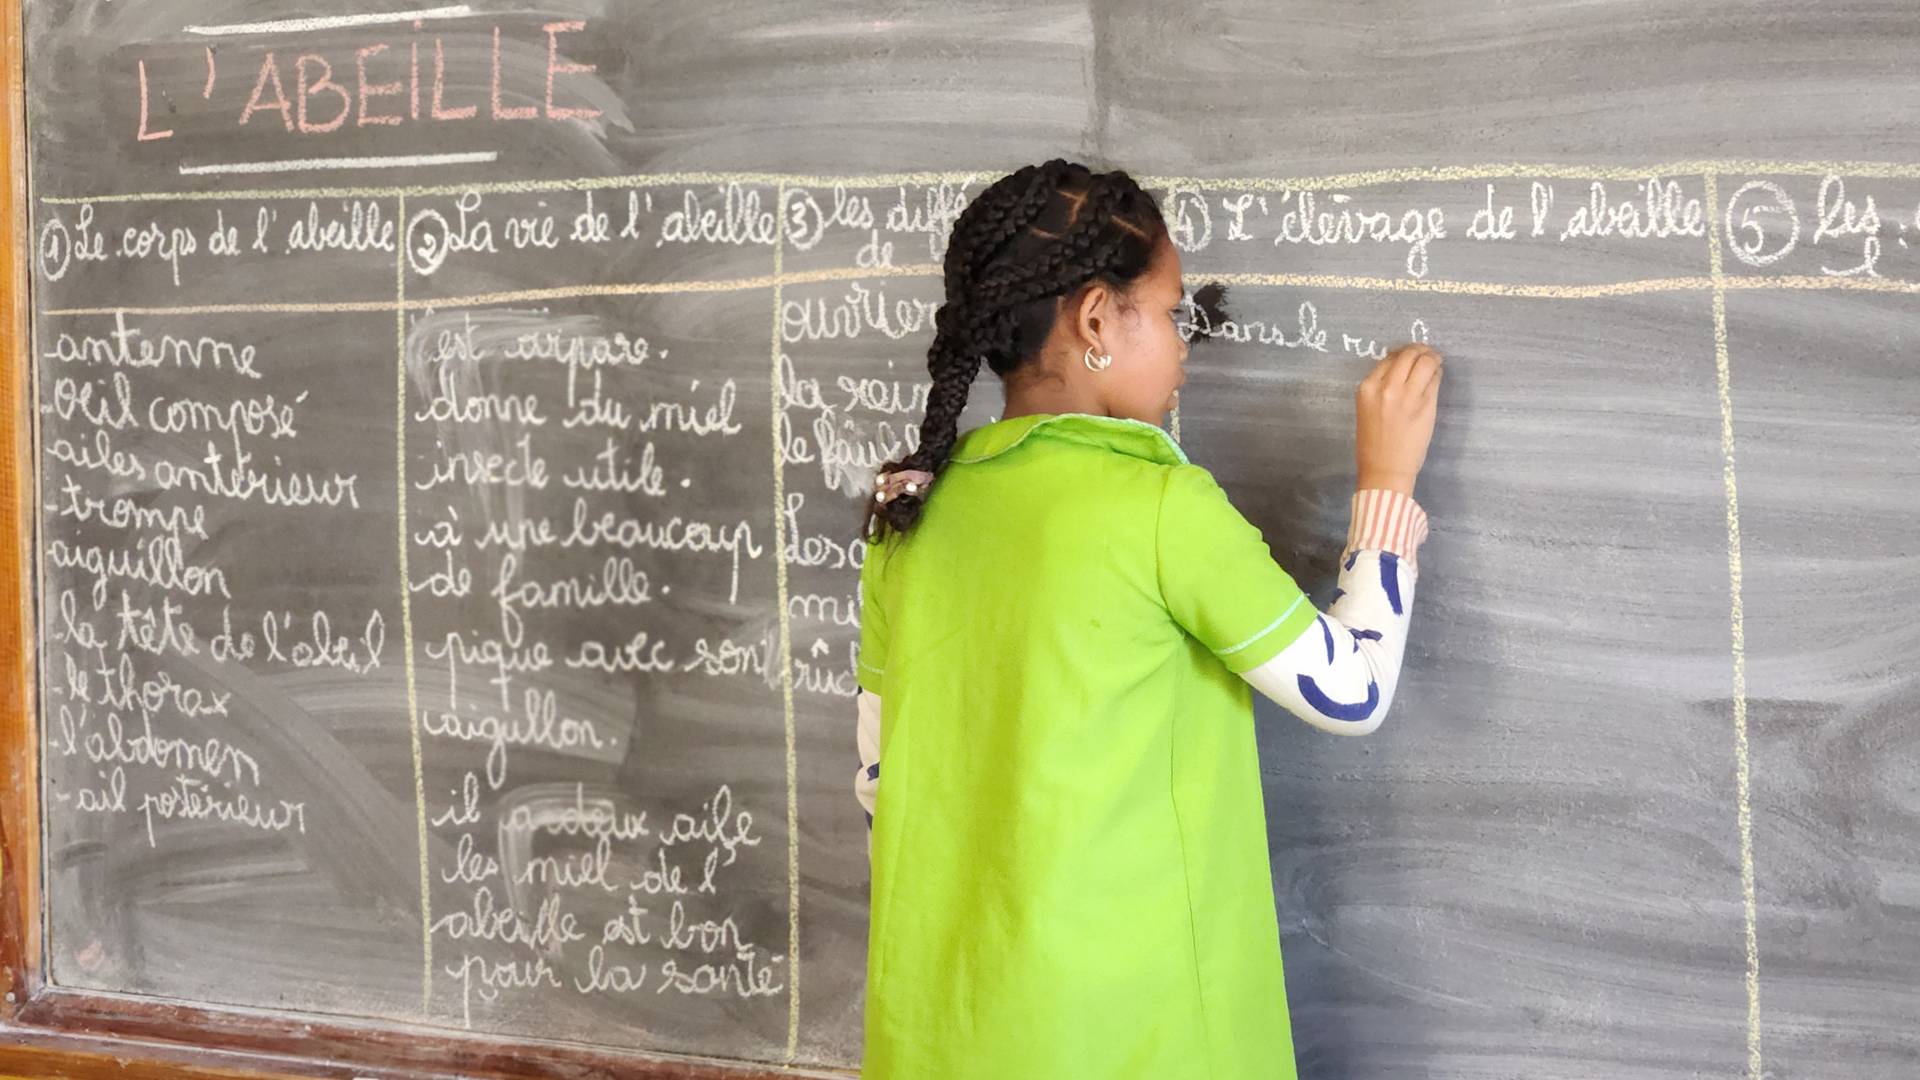 L'ABEILLE
① Le corps de l'abeille
antenne
-œil composé
-ailes antérieur
-trompe
-aiguillon
-la tête de l'abeil
-le thorax
-l'abdomen
-ail postérieur
② La vie de l'abeille
est
donne du miel
insecte utile.
à une beaucoup
de famille.
pique avec son
aigullon.
il a deux aile
les miel de l'
abeille est bon
pour la santé
③ les diffé
de
ouvrier
la rein
le
Les
mi
④ L'élevage de l'abeille
Dans le ru
⑤ les
l